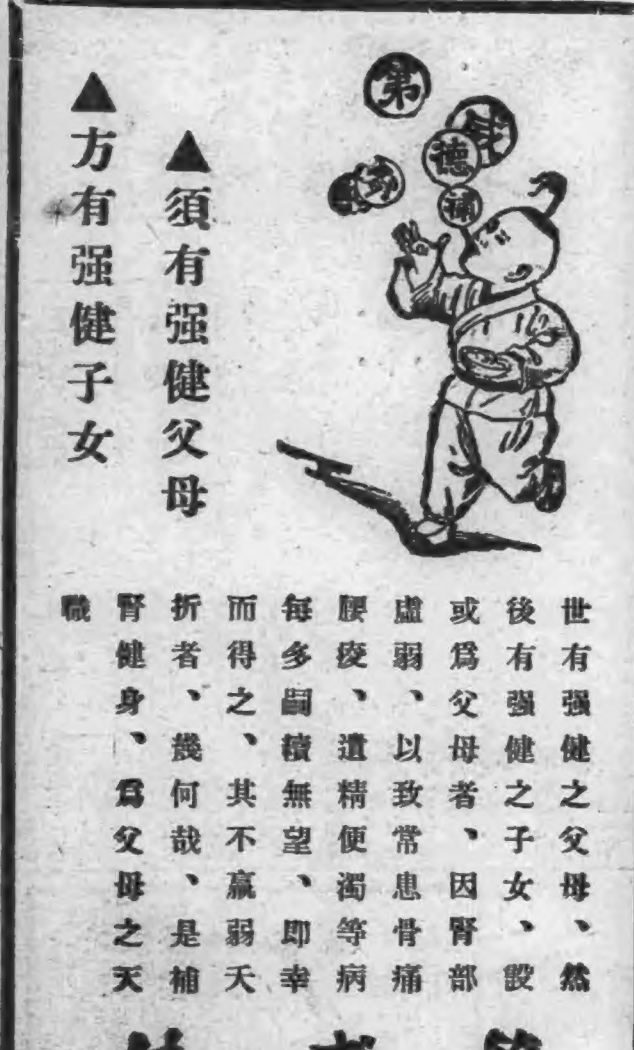 ▲須有强健父母
▲方有强健子女
弟
德
補
世有强健之父母、然
後有强健之子女、設
或爲父母者、因腎部
虛弱、以致常患骨痛
腰痠、遺精便濁等病
每多嗣續無望、卽幸
而得之、其不羸弱夭
折者、幾何哉、是補
腎健身、爲父母之天
職